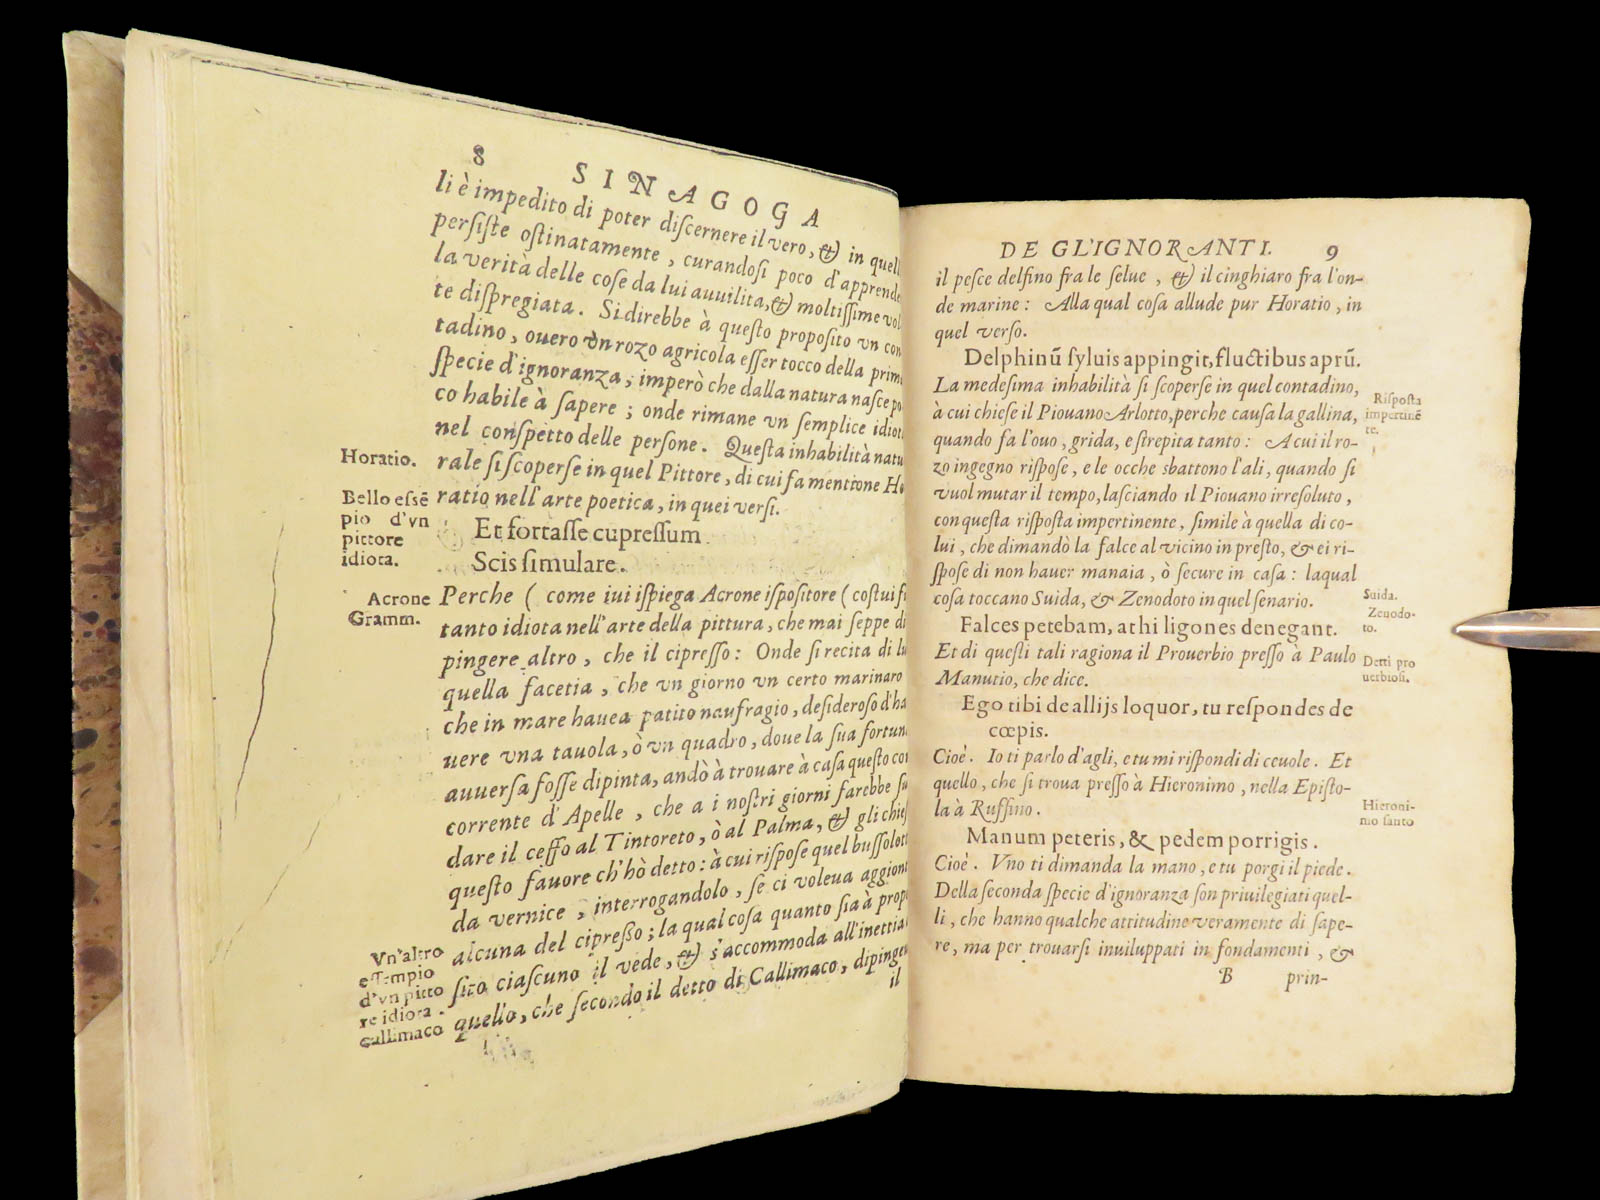 8 SINAGOGA
li è impedito di poter diſcernere il vero, & in quell
perſiſte oſtinatamente, curandoſi poco d'apprende
la verità delle coſe da lui auuilita, & moltiſſime vol
te diſpregiata. Si direbbe à queſto propoſito vn con
tadino, ouero vn rozo agricola eſſer tocco della prim
ſpecie d'ignoranza; imperò che dalla natura naſce po
co habile à ſapere; onde rimane vn ſemplice idiot
nel conſpetto delle perſone. Queſta inhabilità natu
rale ſi ſcoperſe in quel Pittore, di cui fa mentione Ho
ratio nell'arte poetica, in quei verſi.
Et fortaſſe cupreſſum
Scis ſimulare.
Perche ( come iui iſpiega Acrone iſpoſitore ( coſtui f
tanto idiota nell'arte della pittura, che mai ſeppe di
pingere altro, che il cipreſſo: Onde ſi recita di lu
quella facetia, che vn giorno vn certo marinaro
che in mare hauea patito naufragio, deſideroſo d'ha
uere vna tauola, ò vn quadro, doue la ſua fortun
auuerſa foſſe dipinta, andò à trouare à caſa queſto con
corrente d'Apelle, che a i noſtri giorni farebbe ſu
dare il ceffo al Tintoreto, ò al Palma, & gli chieſ
queſto fauore ch'hò detto: à cui riſpoſe quel buſſolott
da vernice, interrogandolo, ſe ci voleua aggiont
alcuna del cipreſſo; la qual coſa quanto ſia à propo
ſito ciaſcuno il vede, & s'accommoda all'inettia
quello, che ſecondo il detto di Callimaco, dipinge
il
Horatio.
Bello eſsē
pio d'vn
pittore
idiota.
Acrone
Gramm.
Vn'altro
eſſempio
d'vn pitto
re idiota.
Callimaco
DE GL'IGNORANTI. 9
il peſce delfino fra le ſelue, & il cinghiaro fra l'on-
de marine: Alla qual coſa allude pur Horatio, in
quel verſo.
Delphinū ſyluis appingit, fluctibus aprū.
La medeſima inhabilità ſi ſcoperſe in quel contadino,
à cui chieſe il Piouano Arlotto, perche cauſa la gallina,
quando fa l'ouo, grida, e ſtrepita tanto: A cui il ro-
zo ingegno riſpoſe, e le ocche sbattono l'ali, quando ſi
vuol mutar il tempo, laſciando il Piouano irreſoluto,
con queſta riſpoſta impertinente, ſimile à quella di co-
lui, che dimandò la falce al vicino in preſto, & ei ri-
ſpoſe di non hauer manaia, ò ſecure in caſa: laqual
coſa toccano Suida, & Zenodoto in quel ſenario.
Falces petebam, at hi ligones denegant.
Et di queſti tali ragiona il Prouerbio preſſo à Paulo
Manutio, che dice.
Ego tibi de allijs loquor, tu reſpondes de
cœpis.
Cioè. Io ti parlo d'agli, e tu mi riſpondi di ceuole. Et
quello, che ſi troua preſſo à Hieronimo, nella Epiſto-
la à Ruffino.
Manum peteris, & pedem porrigis.
Cioè. Vno ti dimanda la mano, e tu porgi il piede.
Della ſeconda ſpecie d'ignoranza ſon priuilegiati quel-
li, che hanno qualche attitudine veramente di ſape-
re, ma per trouarſi inuiluppati in fondamenti, &
B prin-
Riſpoſta
impertinē
te.
Suida.
Zenodo-
to.
Detti pro
uerbioſi.
Hieroni-
mo ſanto